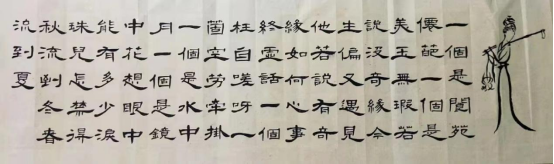 一個是閬苑
僊葩一個是
美玉無瑕若
說沒奇緣今
生偏又遇見
他若說有奇
緣如何心事
終虛話一個
枉自嗟呀一
箇空勞牽掛
一個是水中
月一個是鏡
中花想眼中
能有多少淚
珠兒怎禁得
秋流到冬春
流到夏